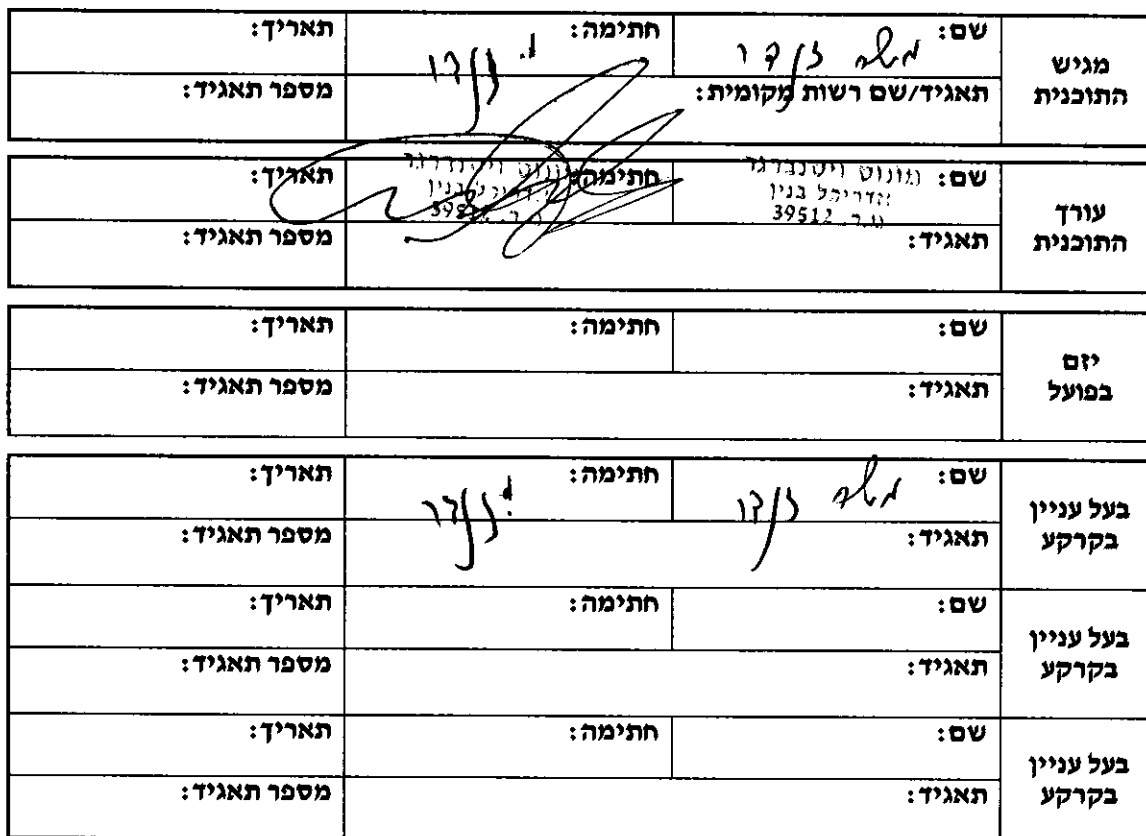 מגיש התוכנית
שם: משה חתימה: תאריך:
תאגיד/שם רשות מקומית: מספר תאגיד:
עורך התוכנית
שם: חתימה: תאריך:
אדריכל בנין
מ.ר. 39512
תאגיד: מספר תאגיד:
יזם בפועל
שם: חתימה: תאריך:
תאגיד: מספר תאגיד:
בעל עניין בקרקע
שם: משה חתימה: תאריך:
תאגיד: מספר תאגיד:
בעל עניין בקרקע
שם: חתימה: תאריך:
תאגיד: מספר תאגיד:
בעל עניין בקרקע
שם: חתימה: תאריך:
תאגיד: מספר תאגיד: